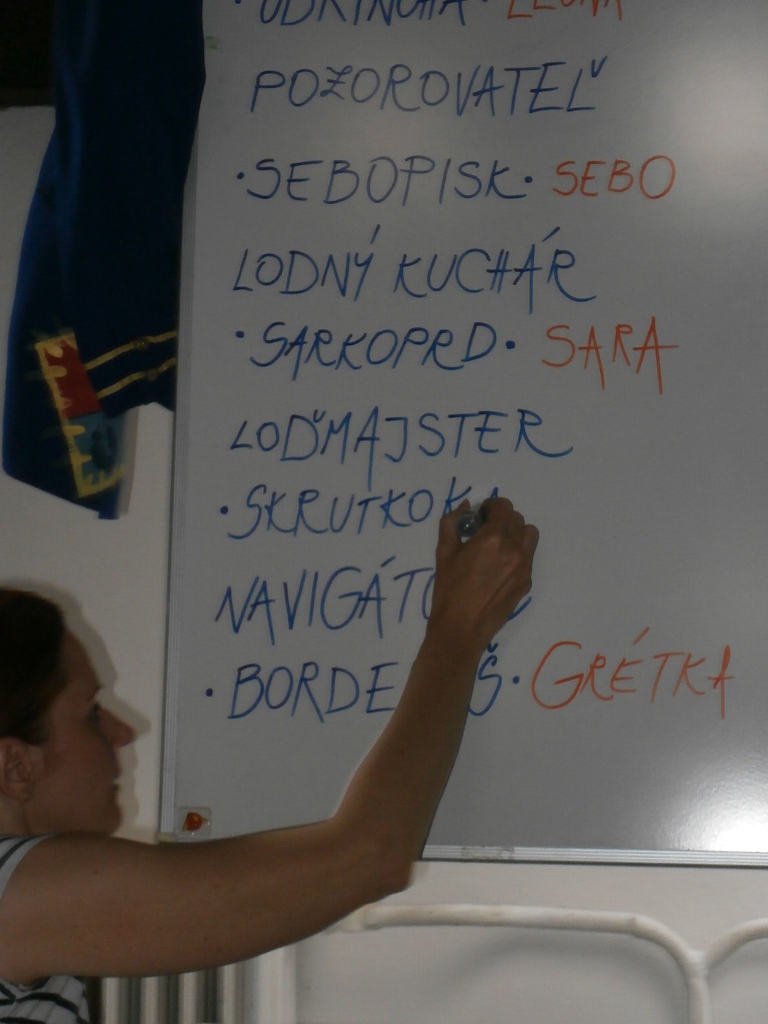 POZOROVATEĽ
·SEBOPISK· SEBO
LODNÝ KUCHÁR
·SARKOPRD· SARA
LOĎMAJSTER
·SKRUTKOK
·GRÉTKA